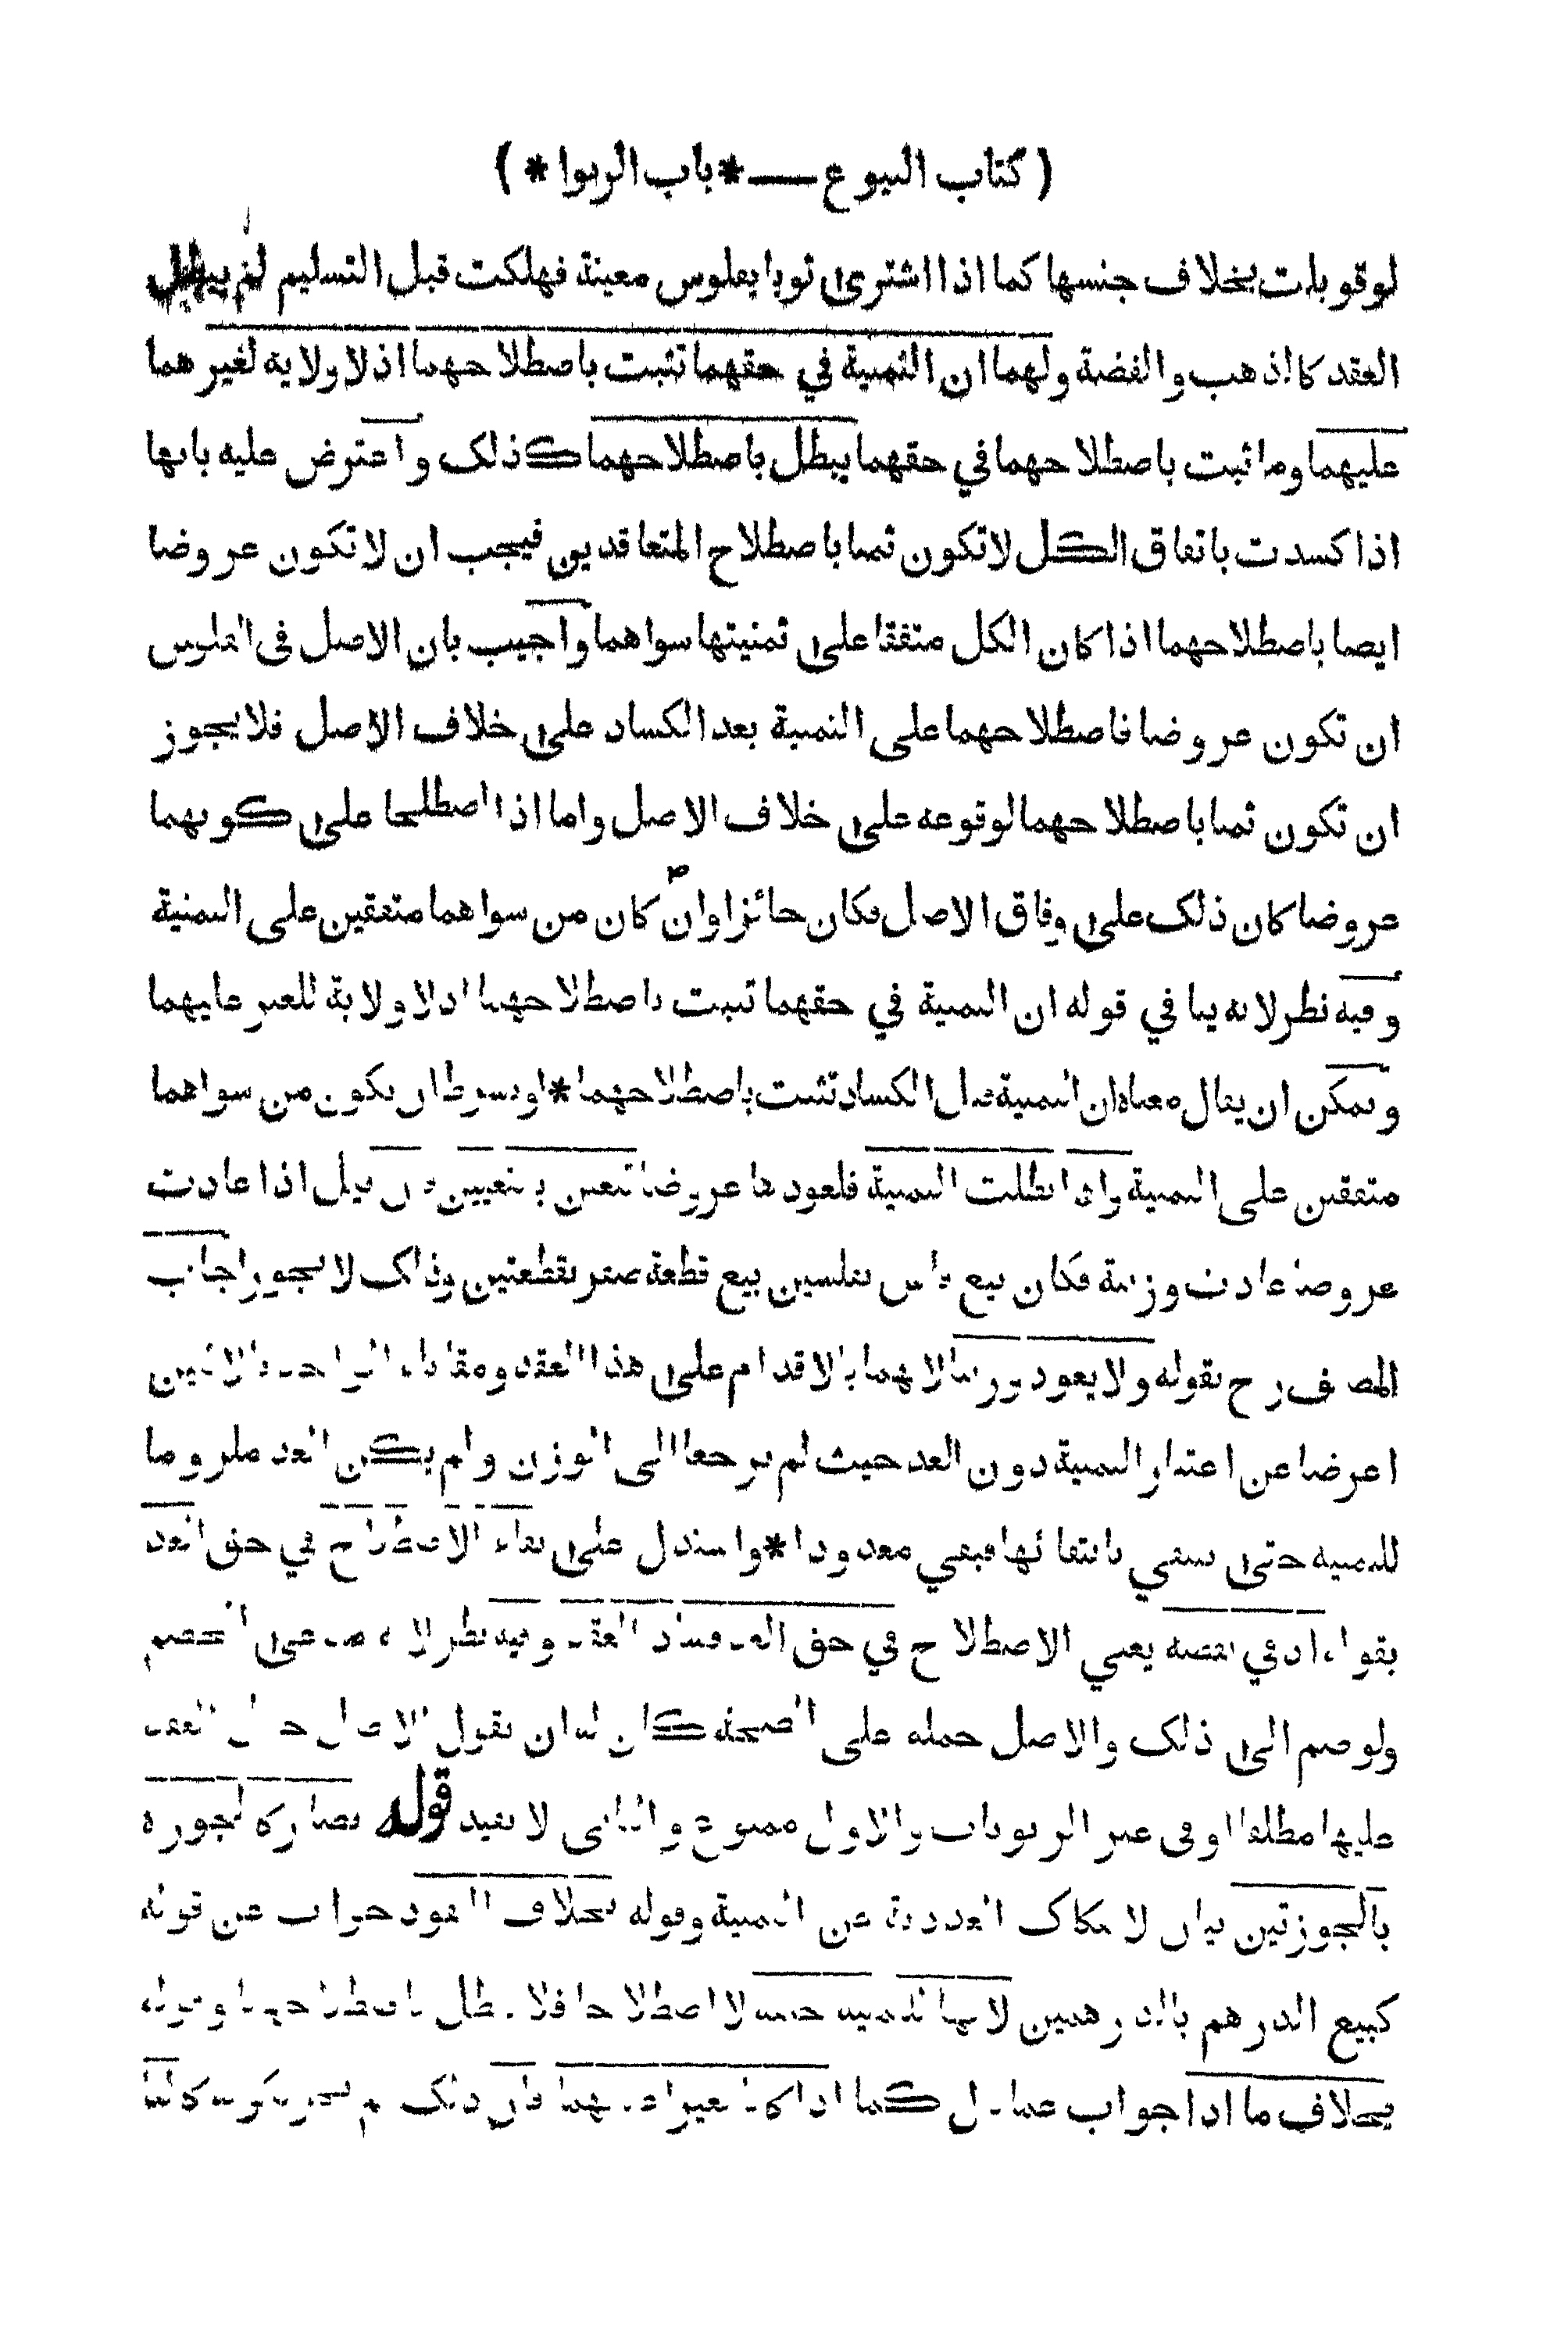 ( كتاب البيوع — * باب الربوا * )
لوقوبلت بخلاف جنسها كما اذا اشترى ثوبا بفلوس معينة فهلكت قبل التسليم لم يبطل
العقد كالذهب والفضة ولهما ان الثمنية في حقهما تثبت باصطلاحهما اذ لا ولاية لغيرهما
عليهما وما ثبت باصطلاحهما في حقهما يبطل باصطلاحهما كذلك واعترض عليه بانها
اذا كسدت باتفاق الكل لا تكون ثمنا باصطلاح المتعاقدين فيجب ان لا تكون عروضا
ايضا باصطلاحهما اذا كان الكل متفقا على ثمنيتها سواهما واجيب بان الاصل في الفلوس
ان تكون عروضا فاصطلاحهما على الثمنية بعد الكساد على خلاف الاصل فلا يجوز
ان تكون ثمنا باصطلاحهما لوقوعه على خلاف الاصل واما اذا اصطلحا على كونهما
عروضا كان ذلك على وفاق الاصل فكان جائزا وان كان من سواهما متفقين على الثمنية
وفيه نظر لانه ينافي قوله ان الثمنية في حقهما تثبت باصطلاحهما اذ لا ولاية للغير عليهما
ويمكن ان يقال معناه ان الثمنية قبل الكساد تثبت باصطلاحهما * او بشرط ان يكون من سواهما
متفقين على الثمنية واذا بطلت الثمنية فلعودها عروضا تتعين بالتعيين فان قيل اذا عادت
عروضا عادت وزنية فكان بيع فلس بفلسين بيع قطعة صفر بقطعتين وذلك لا يجوز اجاب
المصنف رح بقوله ولا يعود وزنيا لانهما بالاقدام على هذا العقد ومقابلة الواحد بالاثنين
اعرضا عن اعتبار الثمنية دون العد حيث لم يرجعا الى الوزن ولم يكن العد ملزوما
للثمنية حتى ينتفي بانتفائها فبقي معدودا * واستدل على بقاء الاصطلاح في حق العد
بقوله اذ في نقضه يعني الاصطلاح في حق العد فساد العقد وفيه نظر لانه مدعى الخصم
ولو ضم الى ذلك والاصل حمله على الصحة كان له ان يقول الاصل حمل العقد
عليها مطلقا او في غير الربويات والاول ممنوع والثاني لا يفيد قوله فصار كالجوزة
بالجوزتين بيان لانفكاك العددية عن الثمنية وقوله بخلاف النقود جواب عن قوله
كبيع الدرهم بالدرهمين لانها للثمنية خلقة لا اصطلاحا فلا تبطل باصطلاحهما وقوله
بخلاف ما اذا جواب عما قال كما اذا كانا بغير اعيانهما فان ذلك لم يجز لكونه كالئا